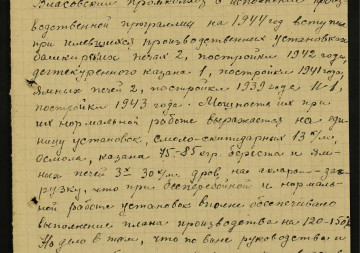 Власовский Промколхоз в исполнение произ-
водственной программы на 1944 год вступил
при имевшихся производственных установках
башкирских печах 2, постройки 1942 года,
дегтекуренного казана 1, постройки 1941 года,
Ямных печей 2, постройки 1939 года и 1,
постройки 1943 года. Мощность их при
их нормальной работе выражается на еди-
ницу установок, смоло-скипидарных 13 м/м,
осмола, казана 75-85 кгр. бересты и ям-
ных печей 3х 30 м/м дров, на
грузку, что при бесперебойной и нормаль-
ной работе установок вполне обеспечивало
выполнение плана производства на 120-150%
Но дело в том, что по вине руководства и